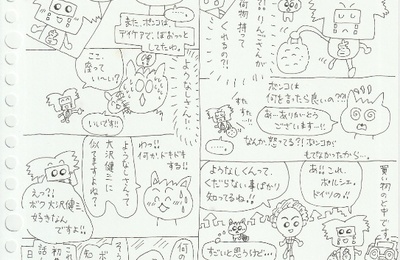 ?!りんごさんが
荷物持って
くれるの?!
ポンコは
何を言ったら良いの?!
あ…ありがとう
ございます…!!
すた
すた…
なんか、怒ってる?!ポンコが
もてなかったから…。
買い物の途中です。
あ!!これ、
ポルシェ。
ドイツの!!
ようなしくんって、
くだらない事ばかり
知ってるね!!
すごいと思うけど…
また、ポンコは
デイケアで、ぼおっと
してたわ。
ようなしさん…!!
ここ、
座って
い〜い?
いいです!!
わっ!!
何か、ドキドキ
する!!
ようなしさんって
大沢健三に
似てますよね?
えっ?!
ボク、大沢健三
好きなん
ですよ!!
何の
そう